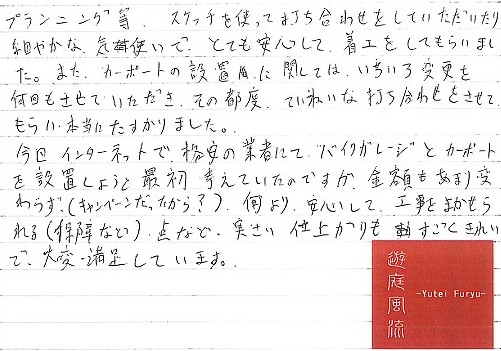 プランニング等、スケッチを使って打ち合わせをしていただいたり
細やかな気遣いで、とても安心して、着工をしてもらいまし
た。また、カーポートの設置に関しては、いろいろ変更を
何回もさせていただき、その都度、ていねいな打ち合わせをさせて
もらい本当にたすかりました。
今回インターネットで、格安の業者にて"バイクガレージ"とカーポート
を設置しようと最初考えていたのですが、金額もあまり変
わらず、(キャンペーンだったから?)、何より、安心して、工事をまかせら
れる(保障など)点など、実さい仕上がりもすごくきれい
で、大変満足しています。
遊庭風流
-Yutei Furyu-